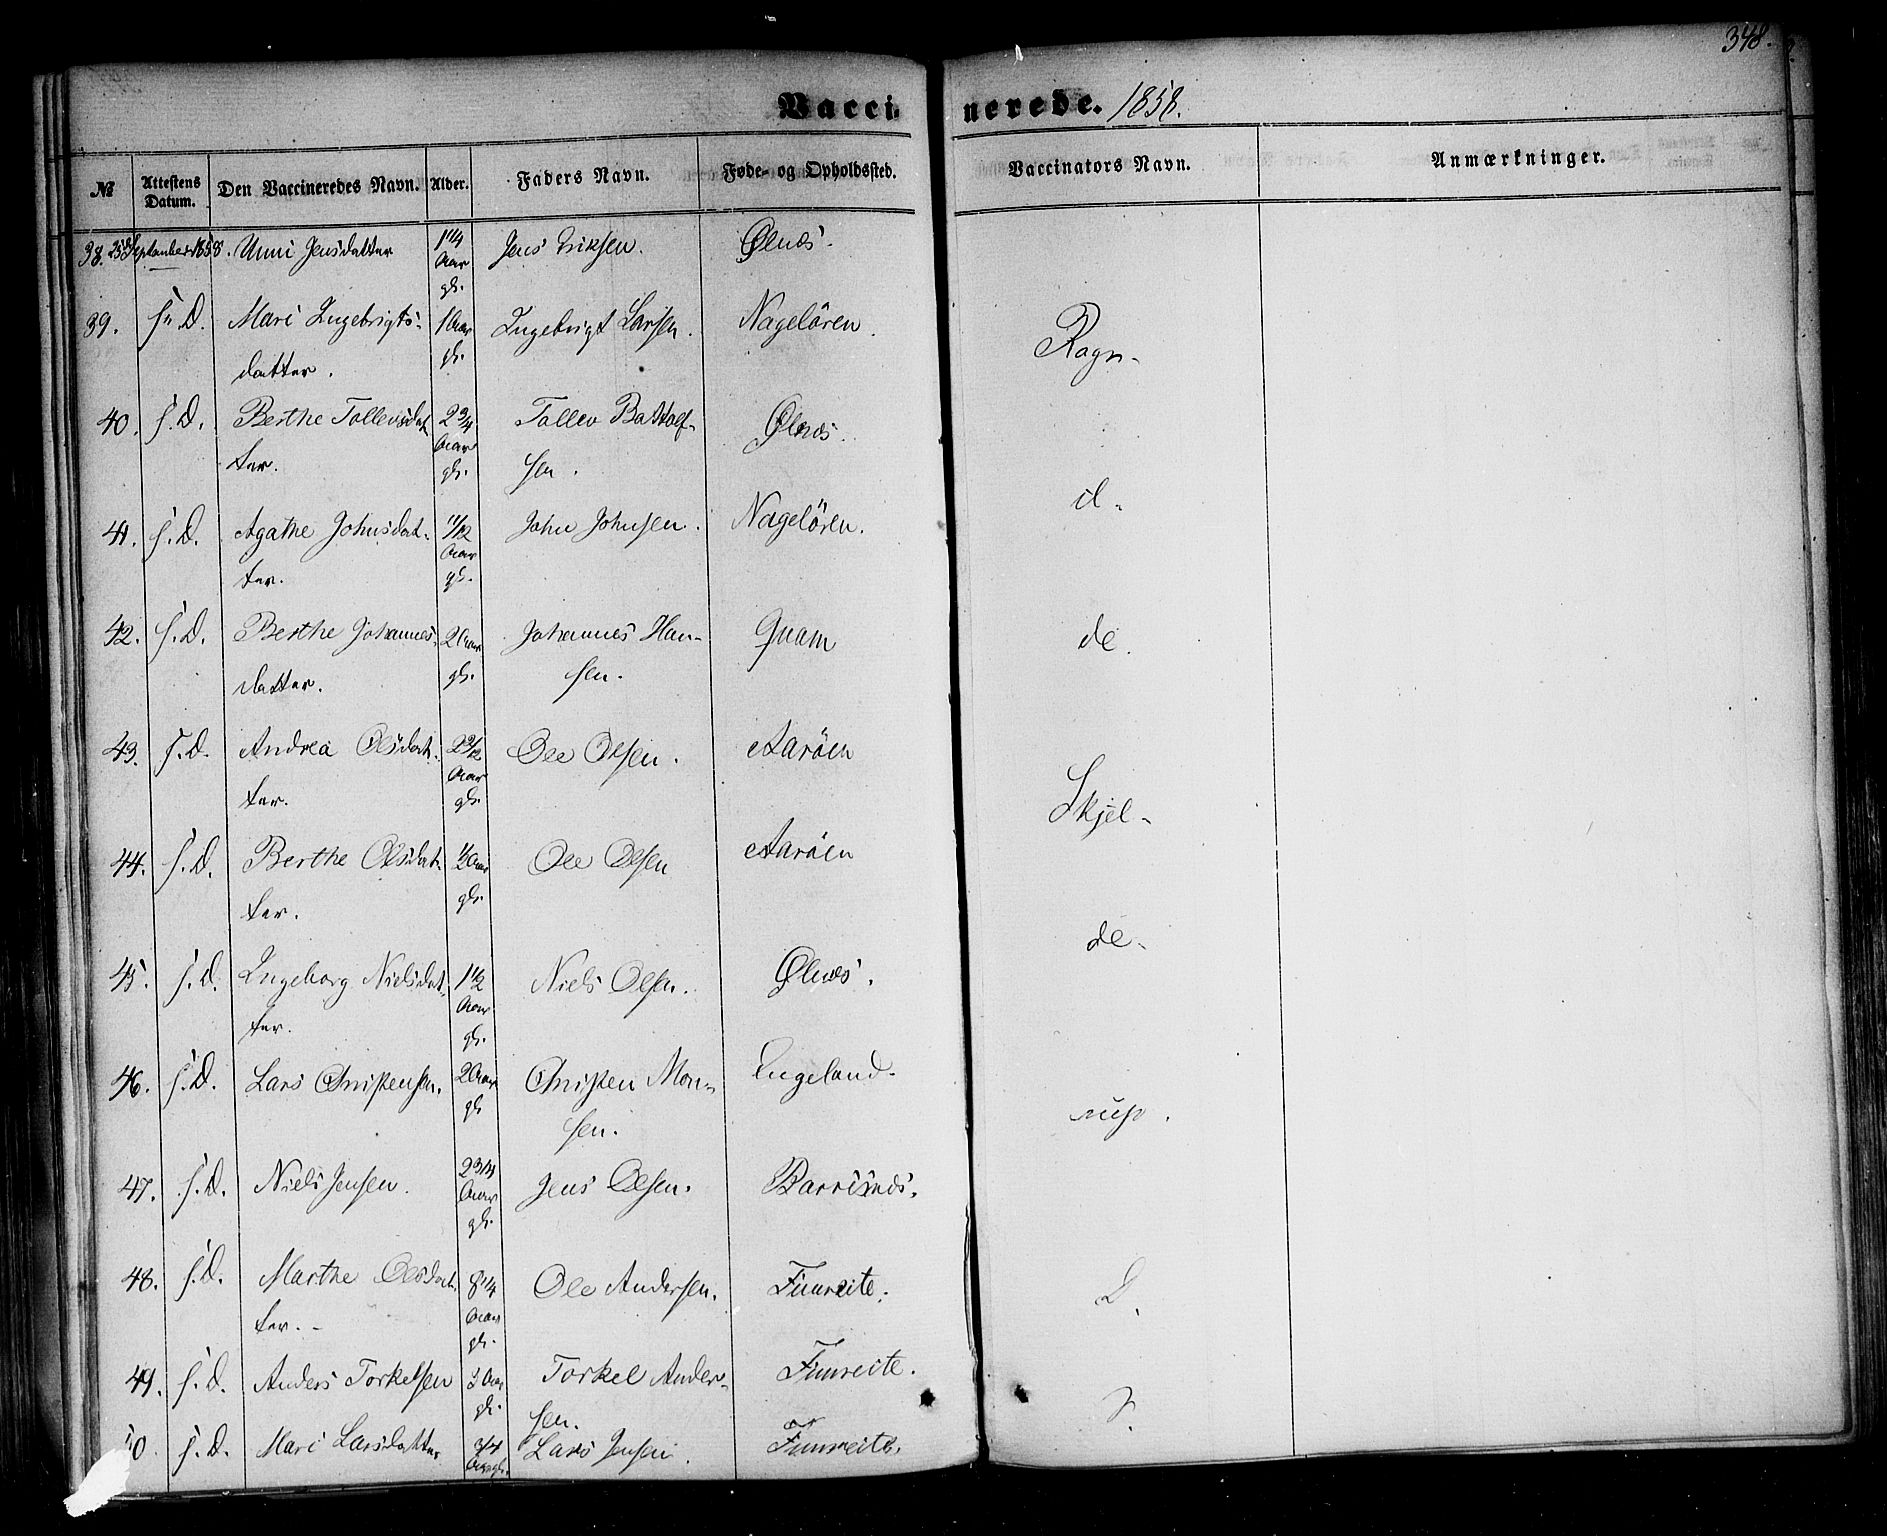 348.
Vaccinerede. 1858.
№ Attestens Datum. Den Vaccineredes Navn. Alder. Faders Navn. Føde- og Opholdssted. Vaccinators Navn. Anmærkninger.
38. 25 September 1858. Unni Jensdatter 1 1/4 Aar gl. Jens Eriksen. Ølnæs.
39. s. D. Mari Ingebrigts- 1 Aar gl. Ingebrigt Larsen. Nageløren.
datter.
Ragn-
40. s. D. Berthe Tollevsdat- 2 3/4 Aar gl. Tollev Battolf- Ølnæs.
ter. sen.
il-
41. s. D. Agathe Johnsdat- 11/12 Aar gl. John Johnsen. Nageløren.
ter.
42. s. D. Berthe Johannes- 2 Aar gl. Johannes Han- Quam
datter. sen.
de.
43. s. D. Andrea Olsdat- Aar gl. Ole Olsen. Aarøen
ter.
Skjel-
44. s. D. Berthe Olsdat- 1/2 Aar gl. Ole Olsen Aarøen
ter.
de-
45. s. D. Ingeborg Nielsdat- 1 1/2 Aar gl. Niels Olsen. Ølnæs.
ter.
46. s. D. Lars Christensen. 2 Aar gl. Christen Mon- Engeland.
sen.
rup.
47. s. D. Niels Jensen. 2 3/4 Aar gl. Jens Olsen. Barsnæs.
48. s. D. Marthe Olsdat- 8 1/4 Aar gl. Ole Andersen. Fimreite.
ter.
D.
49. s. D. Anders Torkelsen 3 Aar gl. Torkel Ander- Fimreite.
sen.
50. s. D. Mari Larsdatter 3/4 Aar gl. Lars Jensen. Fimreite.